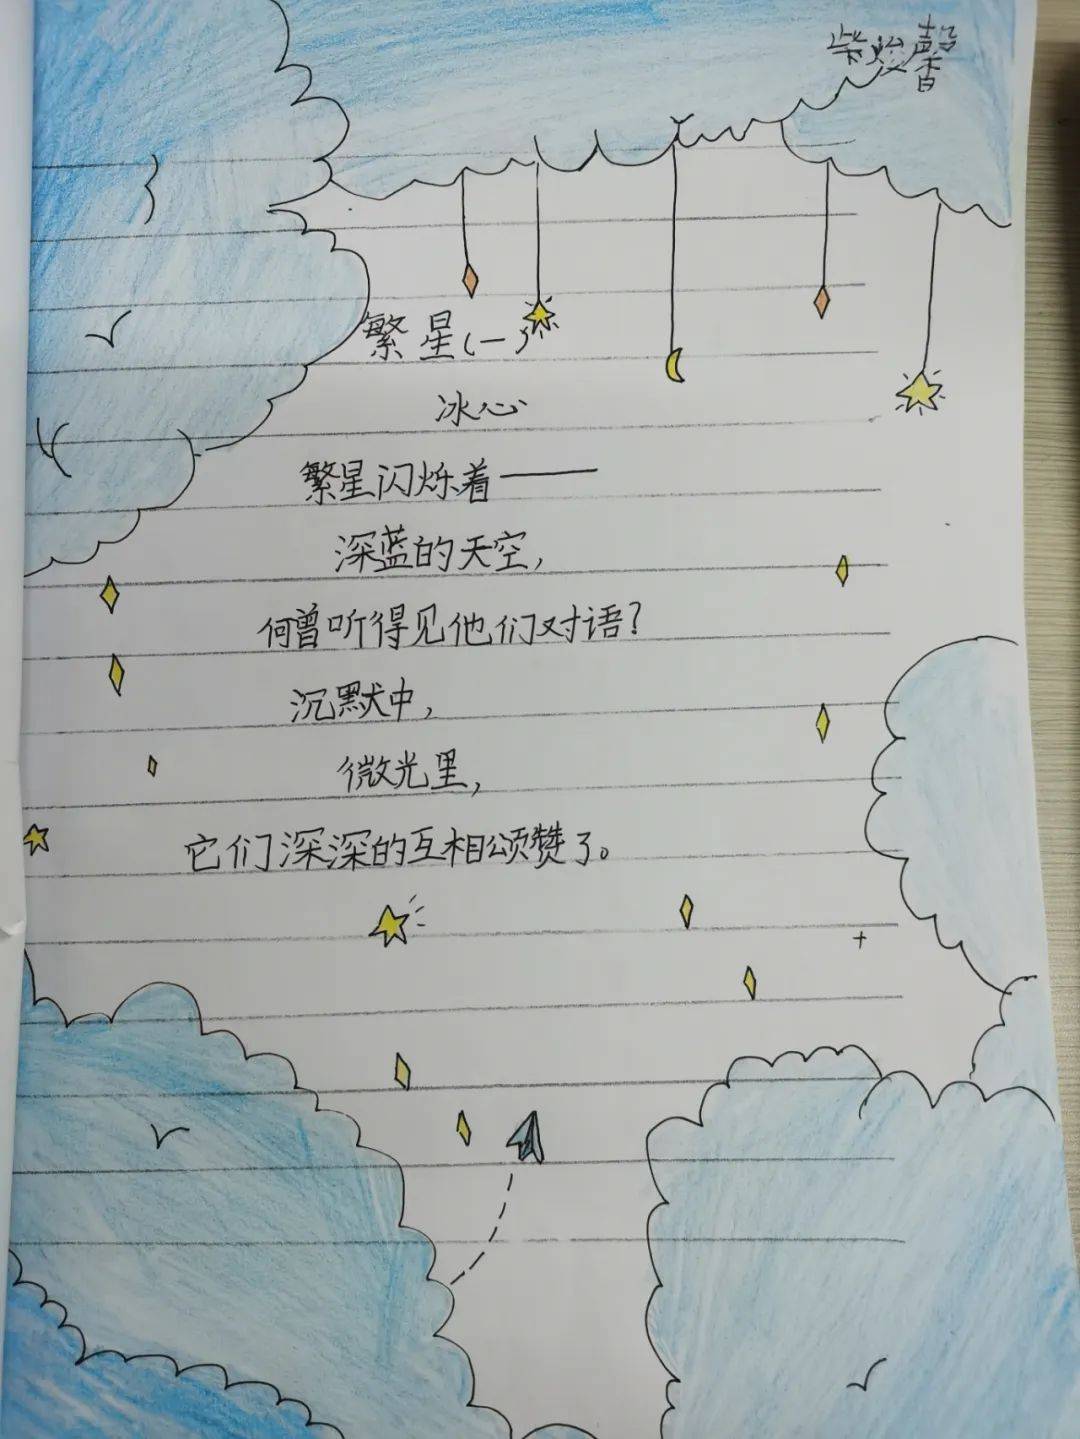 柴焌馨
繁星(一)
冰心
繁星闪烁着——
深蓝的天空,
何曾听得见他们对语?
沉默中,
微光里,
它们深深的互相颂赞了。